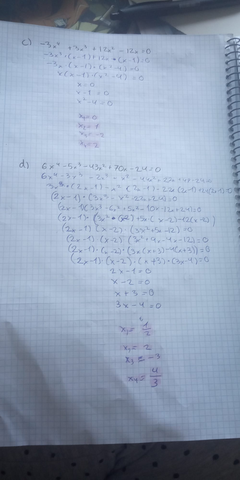 c) -3x⁴ + 3x³ + 12x² - 12x = 0
-3x³ · (x-1) + 12x · (x-1) = 0
-3x · (x-1) · (x²-4) = 0
x (x-1) · (x²-4) = 0
x = 0
x-1 = 0
x²-4 = 0
x₁ = 0
x₂ = 1
x₃ = -2
x₄ = 2
d) 6x⁴ - 5x³ - 43x² + 70x - 24 = 0
(2x-1) · (3x³ - x² - 22x + 24) = 0
(2x-1) · (x-2) · (3x² + 5x - 12) = 0
(2x-1) · (x-2) · (3x² + 9x - 4x - 12) = 0
(2x-1) · (x-2) · (3x (x+3) - 4(x+3)) = 0
(2x-1) · (x-2) · (x+3) · (3x-4) = 0
2x-1 = 0
x-2 = 0
x+3 = 0
3x-4 = 0
x₁ = 1/2
x₂ = 2
x₃ = -3
x₄ = 4/3